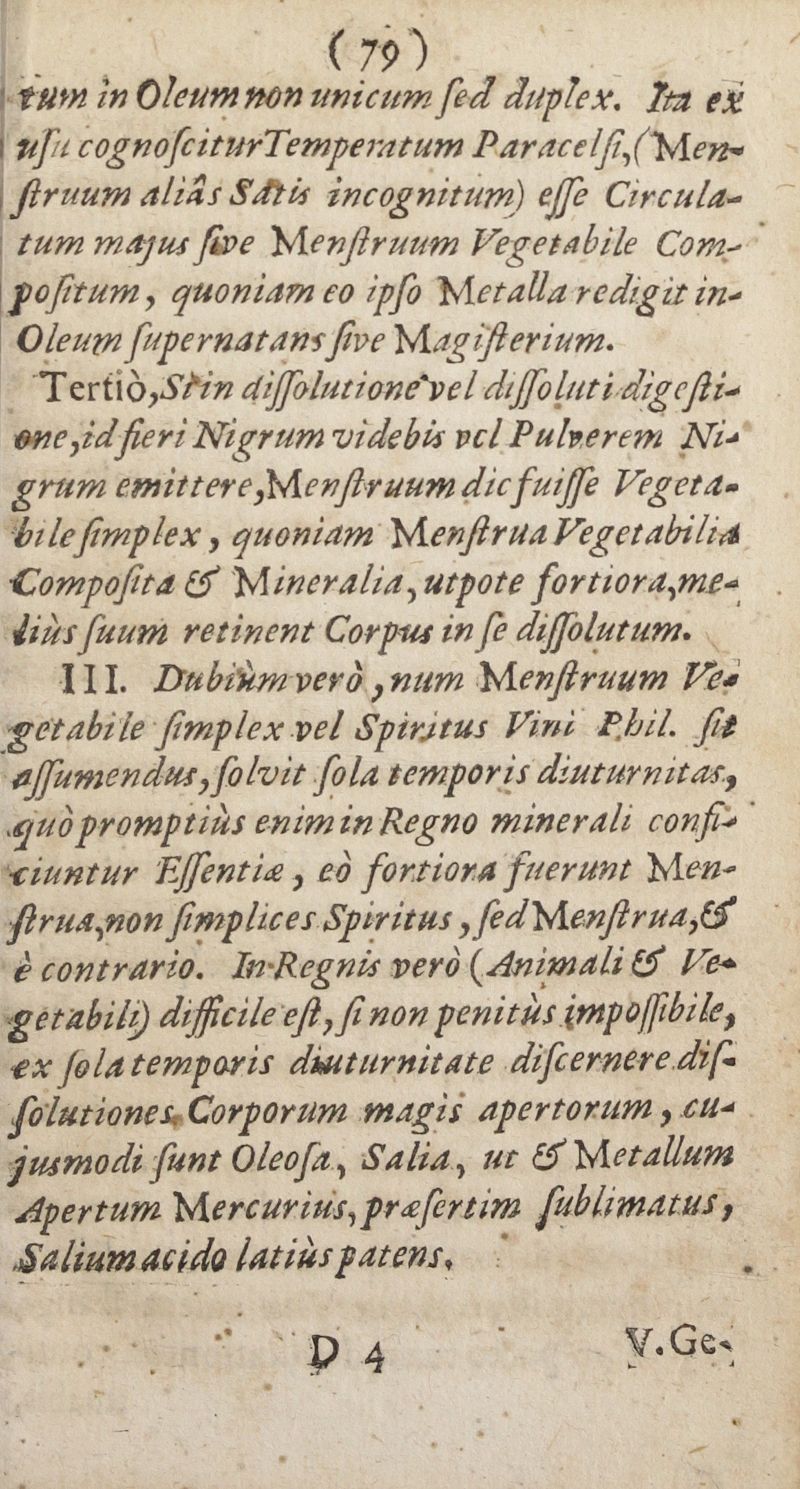 (79)
tum in Oleum non unicum ſed duplex. Ita ex
uſu cognoſcitur Temperatum Paracelſi, (Men-
ſtruum aliâs Satis incognitum) eſſe Circula-
tum majus ſive Menſtruum Vegetabile Com-
poſitum, quoniam eo ipſo Metalla redigit in-
Oleum ſupernatans ſive Magiſterium.
Tertiò, Si in diſſolutione vel diſſoluti digeſti-
one, id fieri Nigrum videbis vel Pulverem Ni-
grum emittere, Menſtruum dic fuiſſe Vegeta-
bile ſimplex, quoniam Menſtrua Vegetabilia
Compoſita & Mineralia, utpote fortiora, me-
liùs ſuum retinent Corpus in ſe diſſolutum.
III. Dubium verò, num Menſtruum Ve-
getabile ſimplex vel Spiritus Vini Phil. ſit
aſſumendus, ſolvit ſola temporis diuturnitas,
quò promptiùs enim in Regno minerali confi-
ciuntur Eſſentiæ, eò fortiora fuerunt Men-
ſtrua, non ſimplices Spiritus, ſed Menſtrua, &
è contrario. In Regnis verò (Animali & Ve-
getabili) difficile eſt, ſi non penitùs impoſſibile,
ex ſola temporis diuturnitate diſcernere diſ-
ſolutiones Corporum magis apertorum, cu-
jusmodi ſunt Oleoſa, Salia, ut & Metallum
Apertum Mercurius, præſertim ſublimatus,
Salium acido latiùs patens.
D 4
V. Ge-